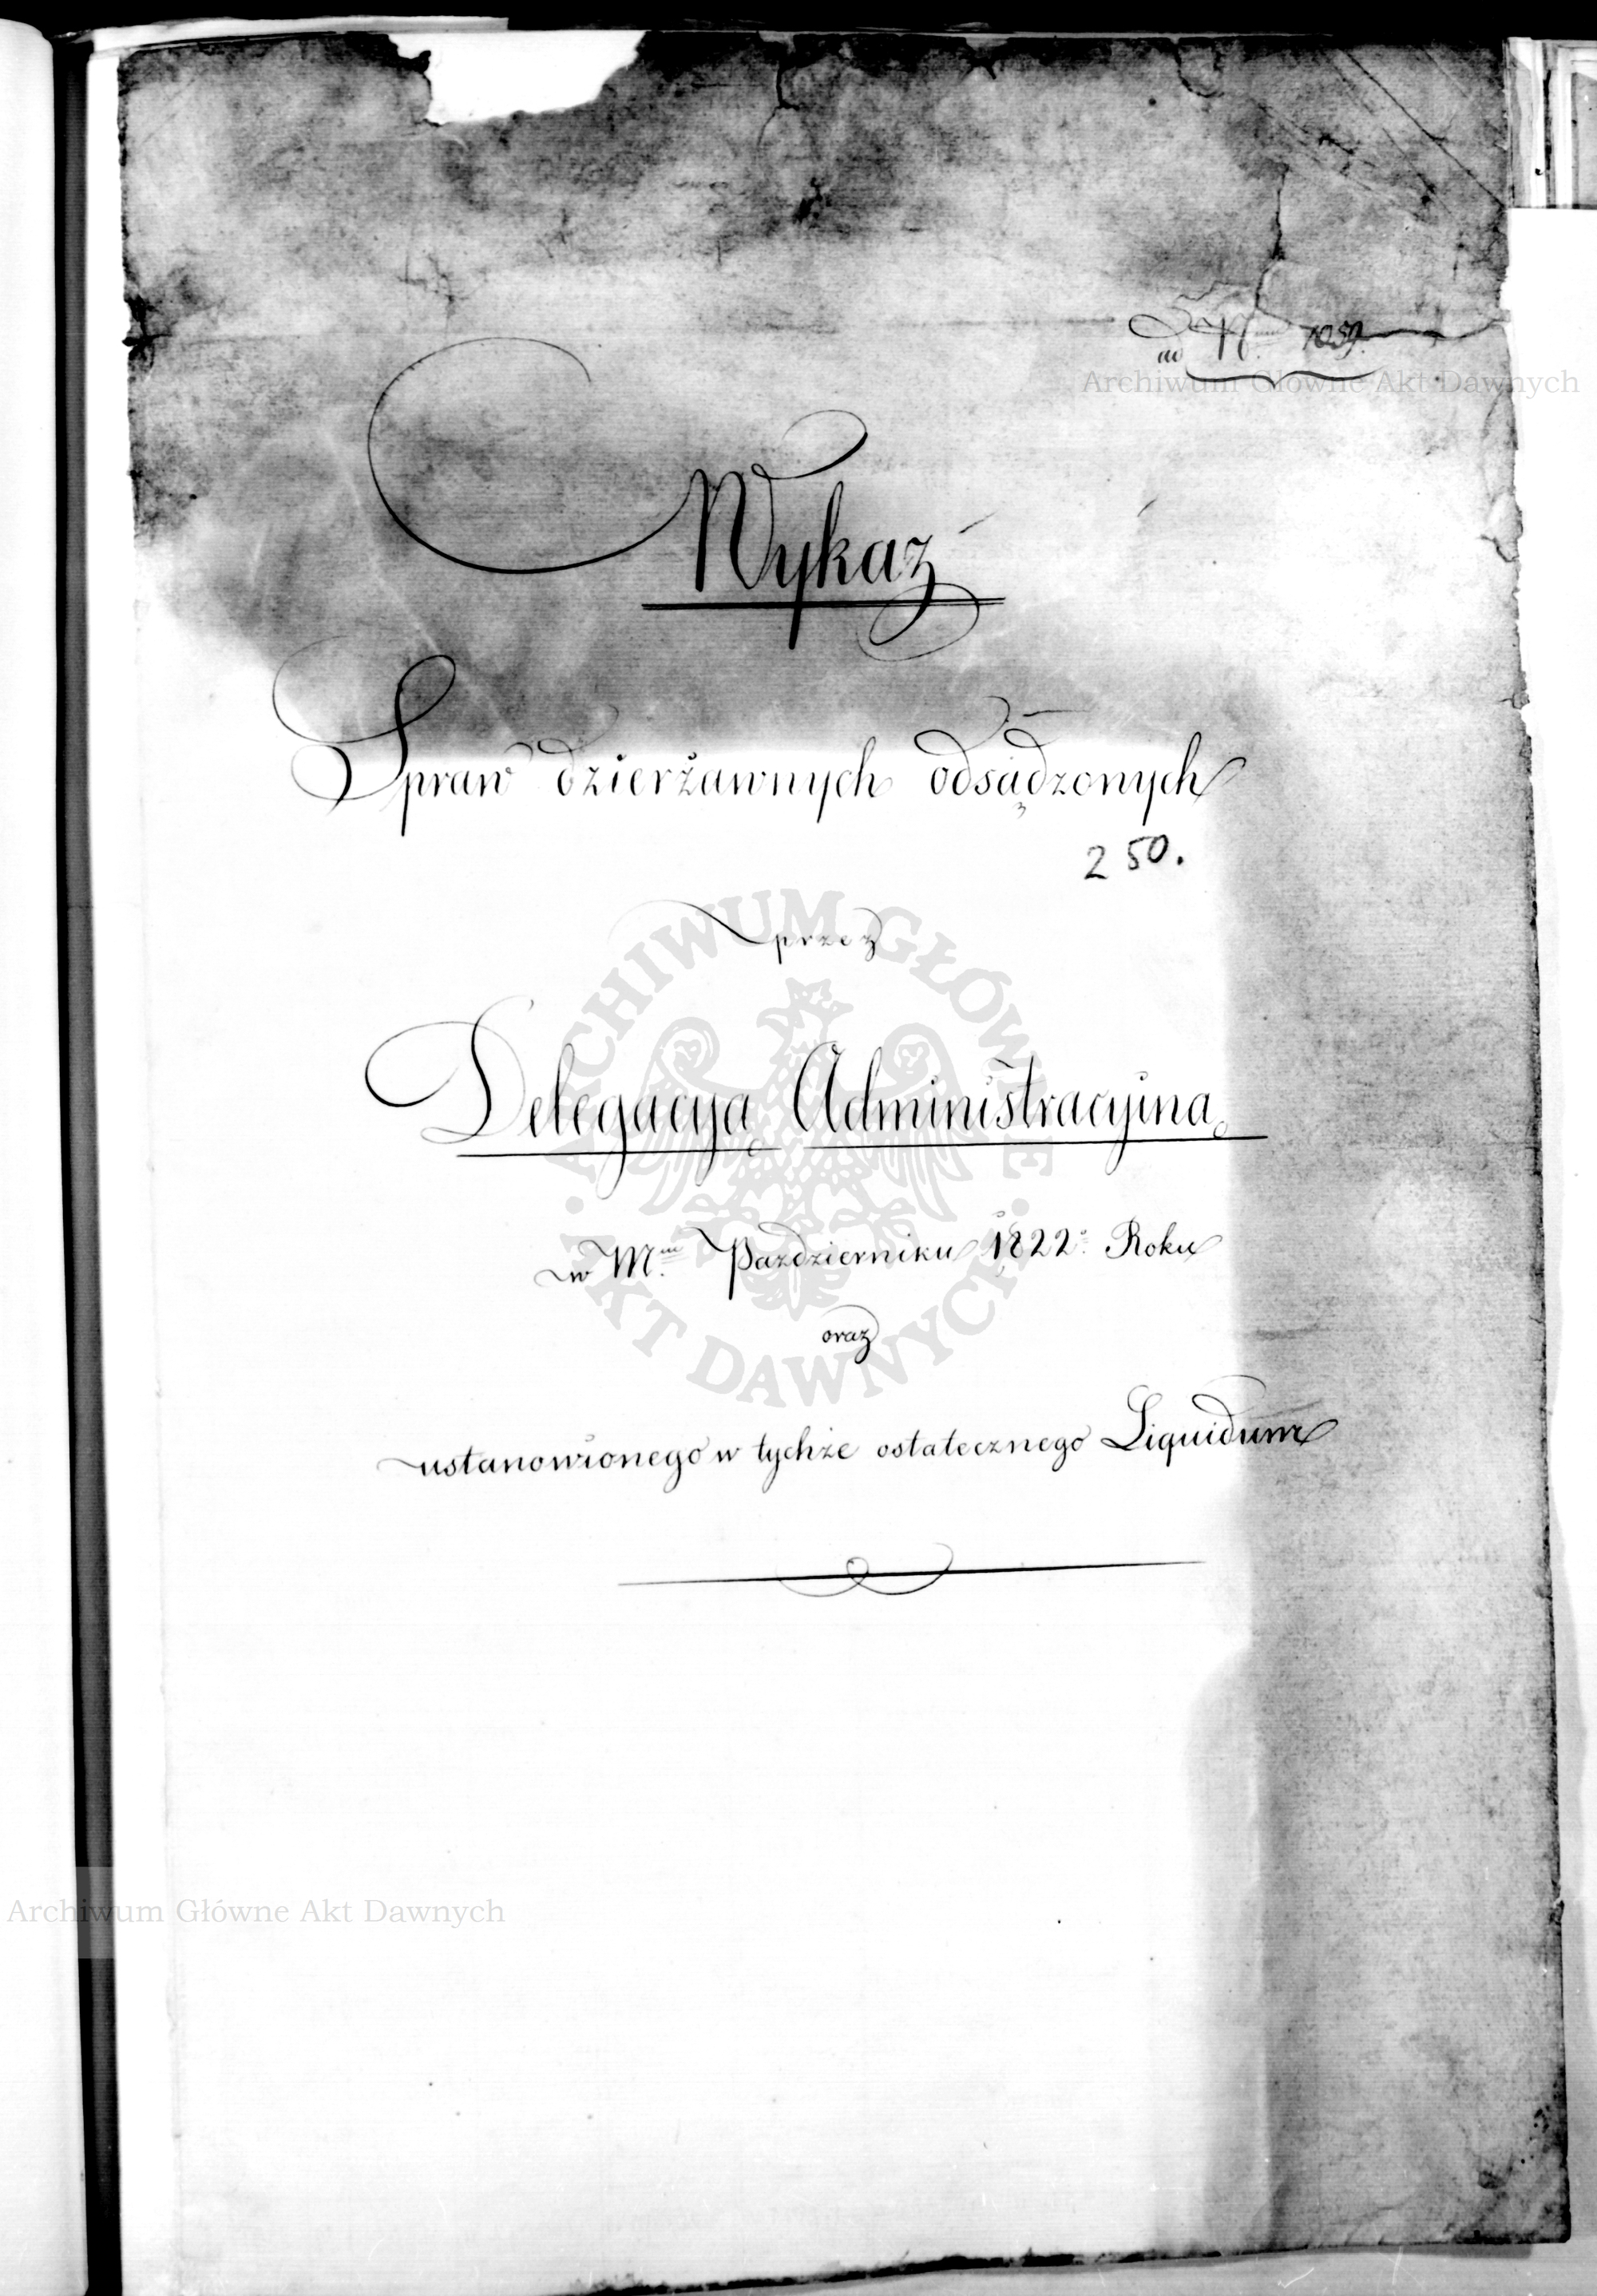 ad N. 1059.
Archiwum Główne Akt Dawnych
Wykaz
Spraw dzierżawnych odsądzonych
250.
przez
Delegacyją Administracyiną
w M. Pazdzierniku 1822. Roku
oraz
ustanowionego w tychże ostatecznego Liquidum
ARCHIWUM GŁÓWNE AKT DAWNYCH
Archiwum Główne Akt Dawnych